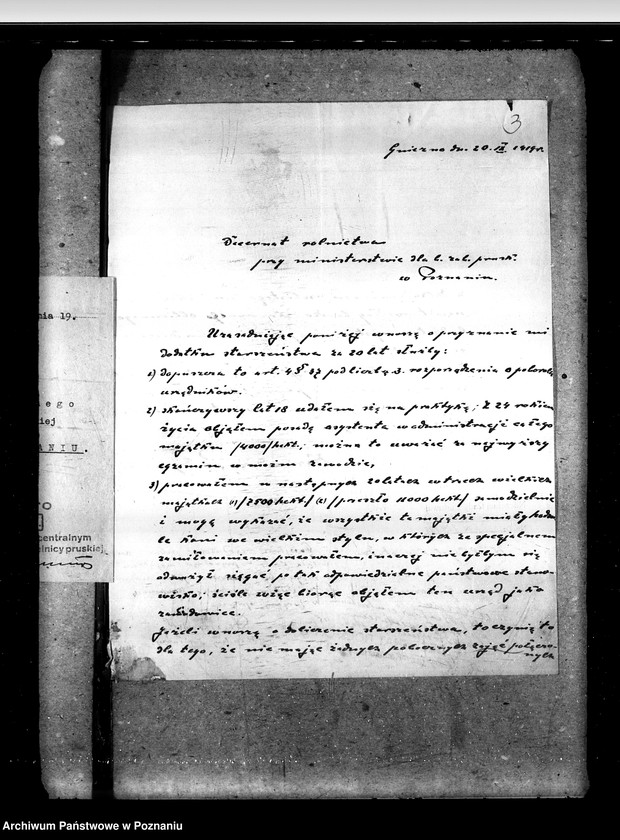 3
Gniezno dn. 20. IX 1919r.
Decernat rolnictwa
przy ministerstwie dla b. zab. prusk.
w Poznaniu.
Uzasadniając poniżej wnoszę o przyznanie mi
dodatku starszeństwa za 20 lat służby:
1) dopuszcza to art. 4 § 37 pod liczbą 3. rozporządzenia o poborach
urzędników.
2) skończywszy lat 18 udałem się na praktykę; z 24 rokiem
życia objąłem posadę asystenta w administracji całego
majątku /4000/hekt.; można to uważać za najwyższy
egzamin w moim zawodzie,
3) pracowałem w następnych 20 latach w trzech wielkich
majątkach (1)/7500 hekt/ (2) /przeszło 11000 hekt/ samodzielnie
i mogę wykazać, że wszystkie te majątki miały hodow-
le koni we wielkim stylu, w których ze specjalnem
zamiłowaniem pracowałem, inaczej nie byłbym się
odważył sięgać, po tak odpowiedzialne państwowe stano-
wisko; ściśle więc biorąc objąłem ten urząd jako
zawodowiec.
Jeżeli wnoszę o doliczenie starszeństwa, to czynię to
dla tego, że nie mając żadnych pobocznych zajęć połączo-
nych
nia 19.
i e g o
i e j
A N I U .
centralnym
elnicy pruskiej
Archiwum Państwowe w Poznaniu